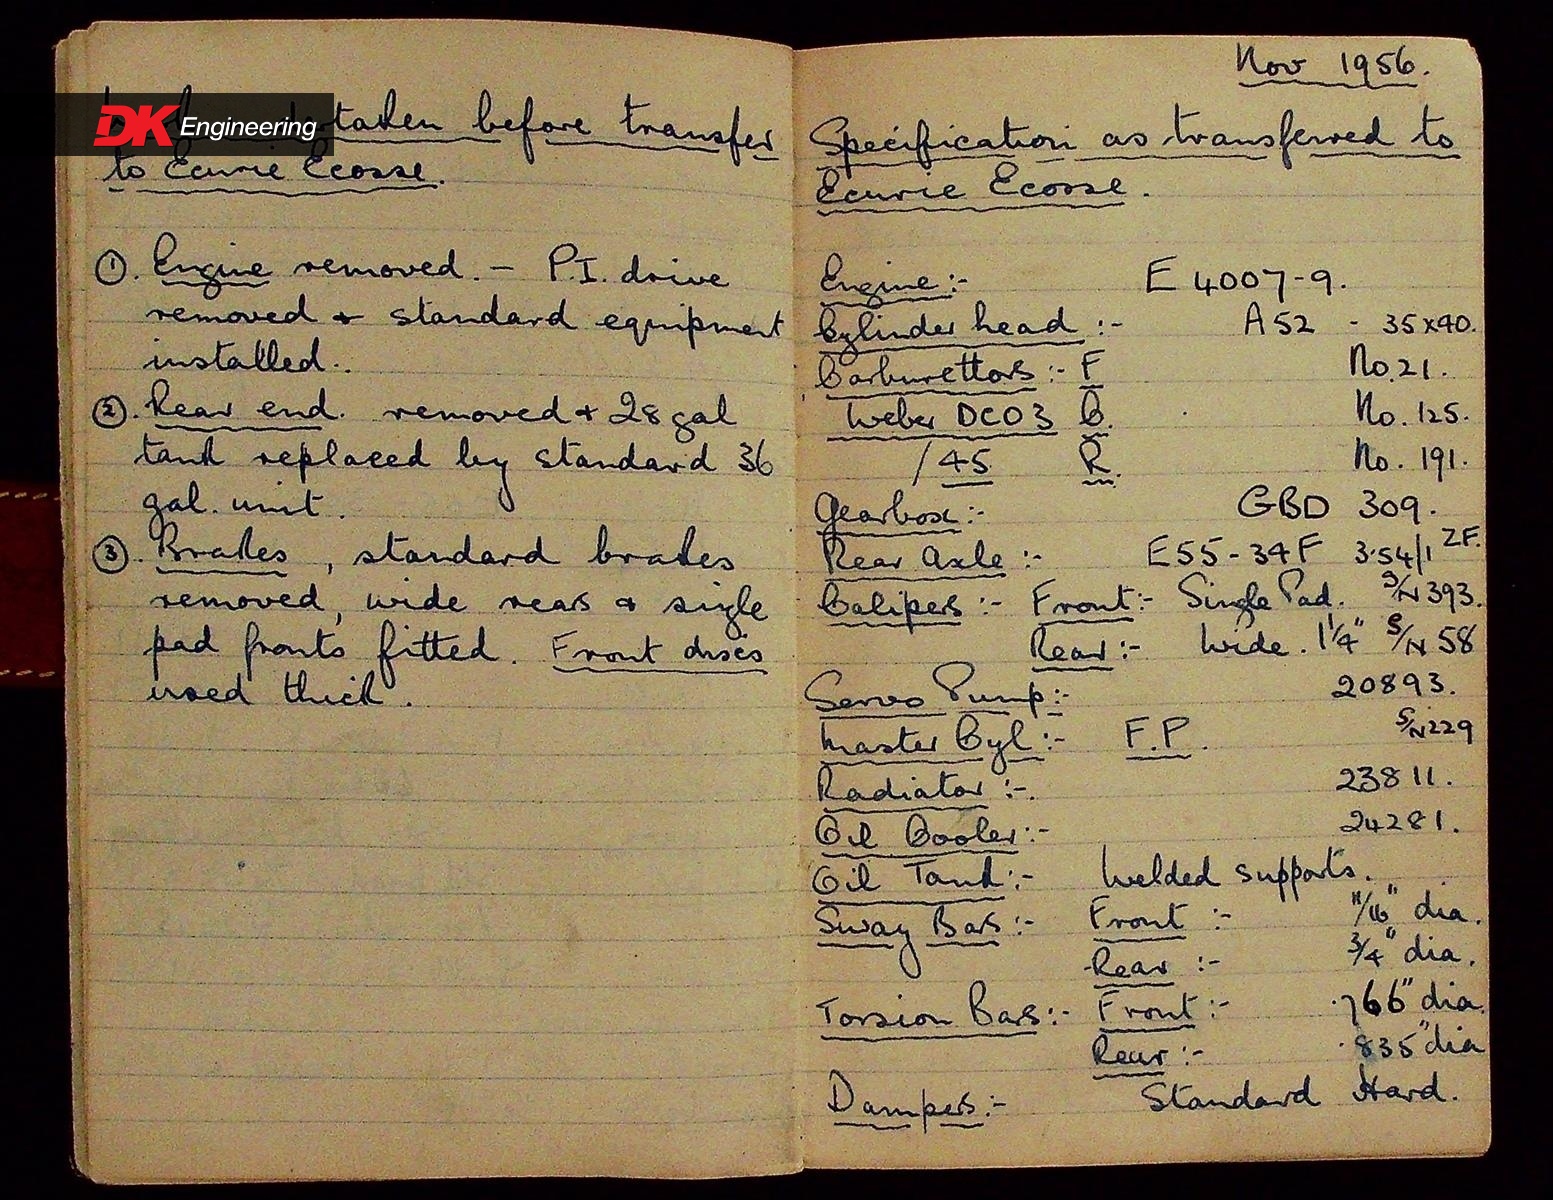 DK Engineering
taken before transfer
to Ecurie Ecosse.
①. Engine removed. - P.I. drive
removed + standard equipment
installed..
②. Rear end. removed + 28 gal
tank replaced by standard 36
gal. unit.
③. Brakes, standard brakes
removed, wide rears + single
pad fronts fitted. Front discs
used thick.
Nov 1956.
Specification as transferred to
Ecurie Ecosse.
Engine:- E 4007-9.
Cylinder head :- A52 - 35x40.
Carburettors:- F No.21.
Weber DCO3 C. No. 125.
/45 R. No. 191.
Gearbox:- GBD 309.
Rear Axle:- E55-34F 3.54/1 ZF.
Calipers:- Front:- Single Pad. S/N 393.
Rear:- Wide. 1¼" S/N 58
Servo Pump:- 20893.
Master Cyl:- F.P. S/N 229
Radiator:-. 23811.
Oil Cooler:- 24281.
Oil Tank:- Welded supports.
Sway Bars:- Front :- 11/16" dia.
Rear :- 3/4" dia.
Torsion Bars:- Front:- .766" dia.
Rear:- .835" dia
Dampers:- Standard Hard.